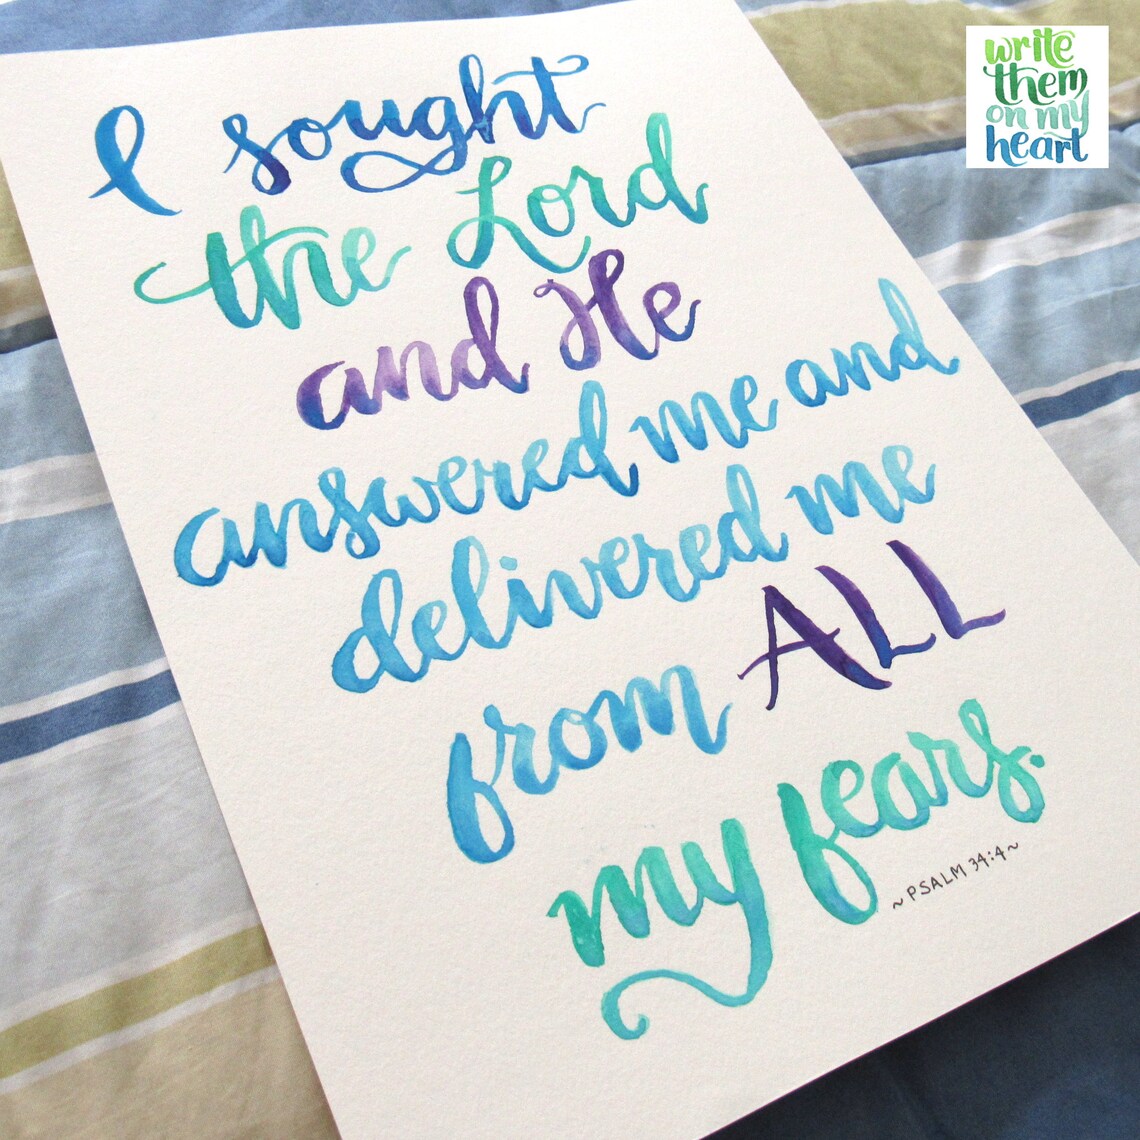 I sought
the Lord
and He
answered me and
delivered me
from ALL
my fears.
~PSALM 34:4~
write
them
on my
heart